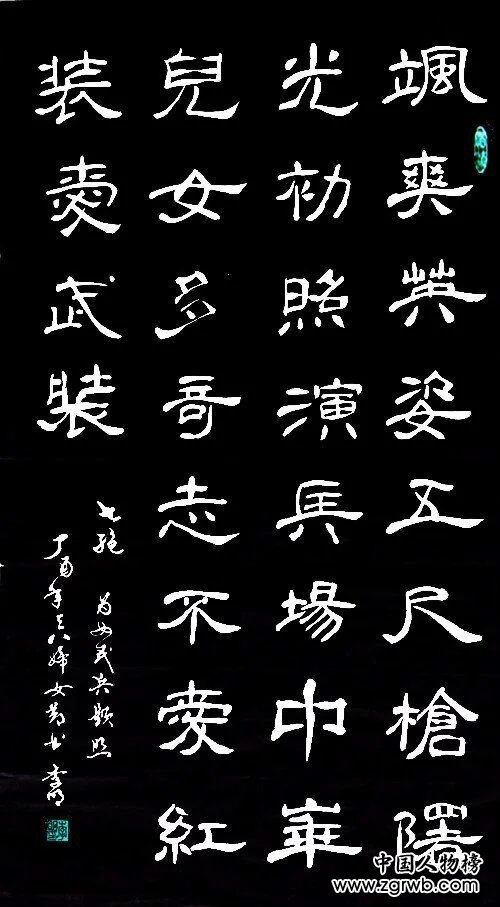 颯爽英姿五尺槍曙
光初照演兵場中華
兒女多奇志不愛紅
装愛武裝
七絕 为女民兵題照
丁酉年三八婦女節書
中国人物榜
www.zgrwb.com